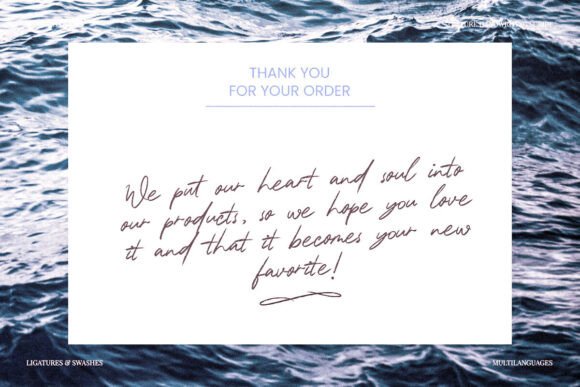 THANK YOU
FOR YOUR ORDER
We put our heart and soul into
our products, so we hope you love
it and that it becomes your new
favorite!
LIGATURES & SWASHES
MULTILANGUAGES